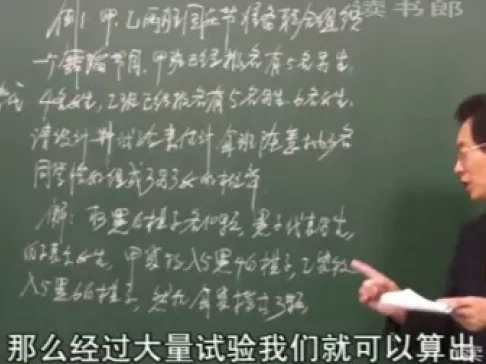 读书郎
例1:甲、乙两班国庆节准备联合组织
一个舞蹈节目,甲班已经报名有5名男生
4名女生,乙班已经报名有5名男生6名女生,
请设计一种试验来估计每班随意抽3名
同学恰好组成3男3女的概率
解:取黑白棋子各10颗,黑子代表男生,
白子表示女生,甲袋放入5黑4白棋子,乙袋放
入5黑6白棋子,然后每袋摸出3颗,
那么经过大量试验我们就可以算出